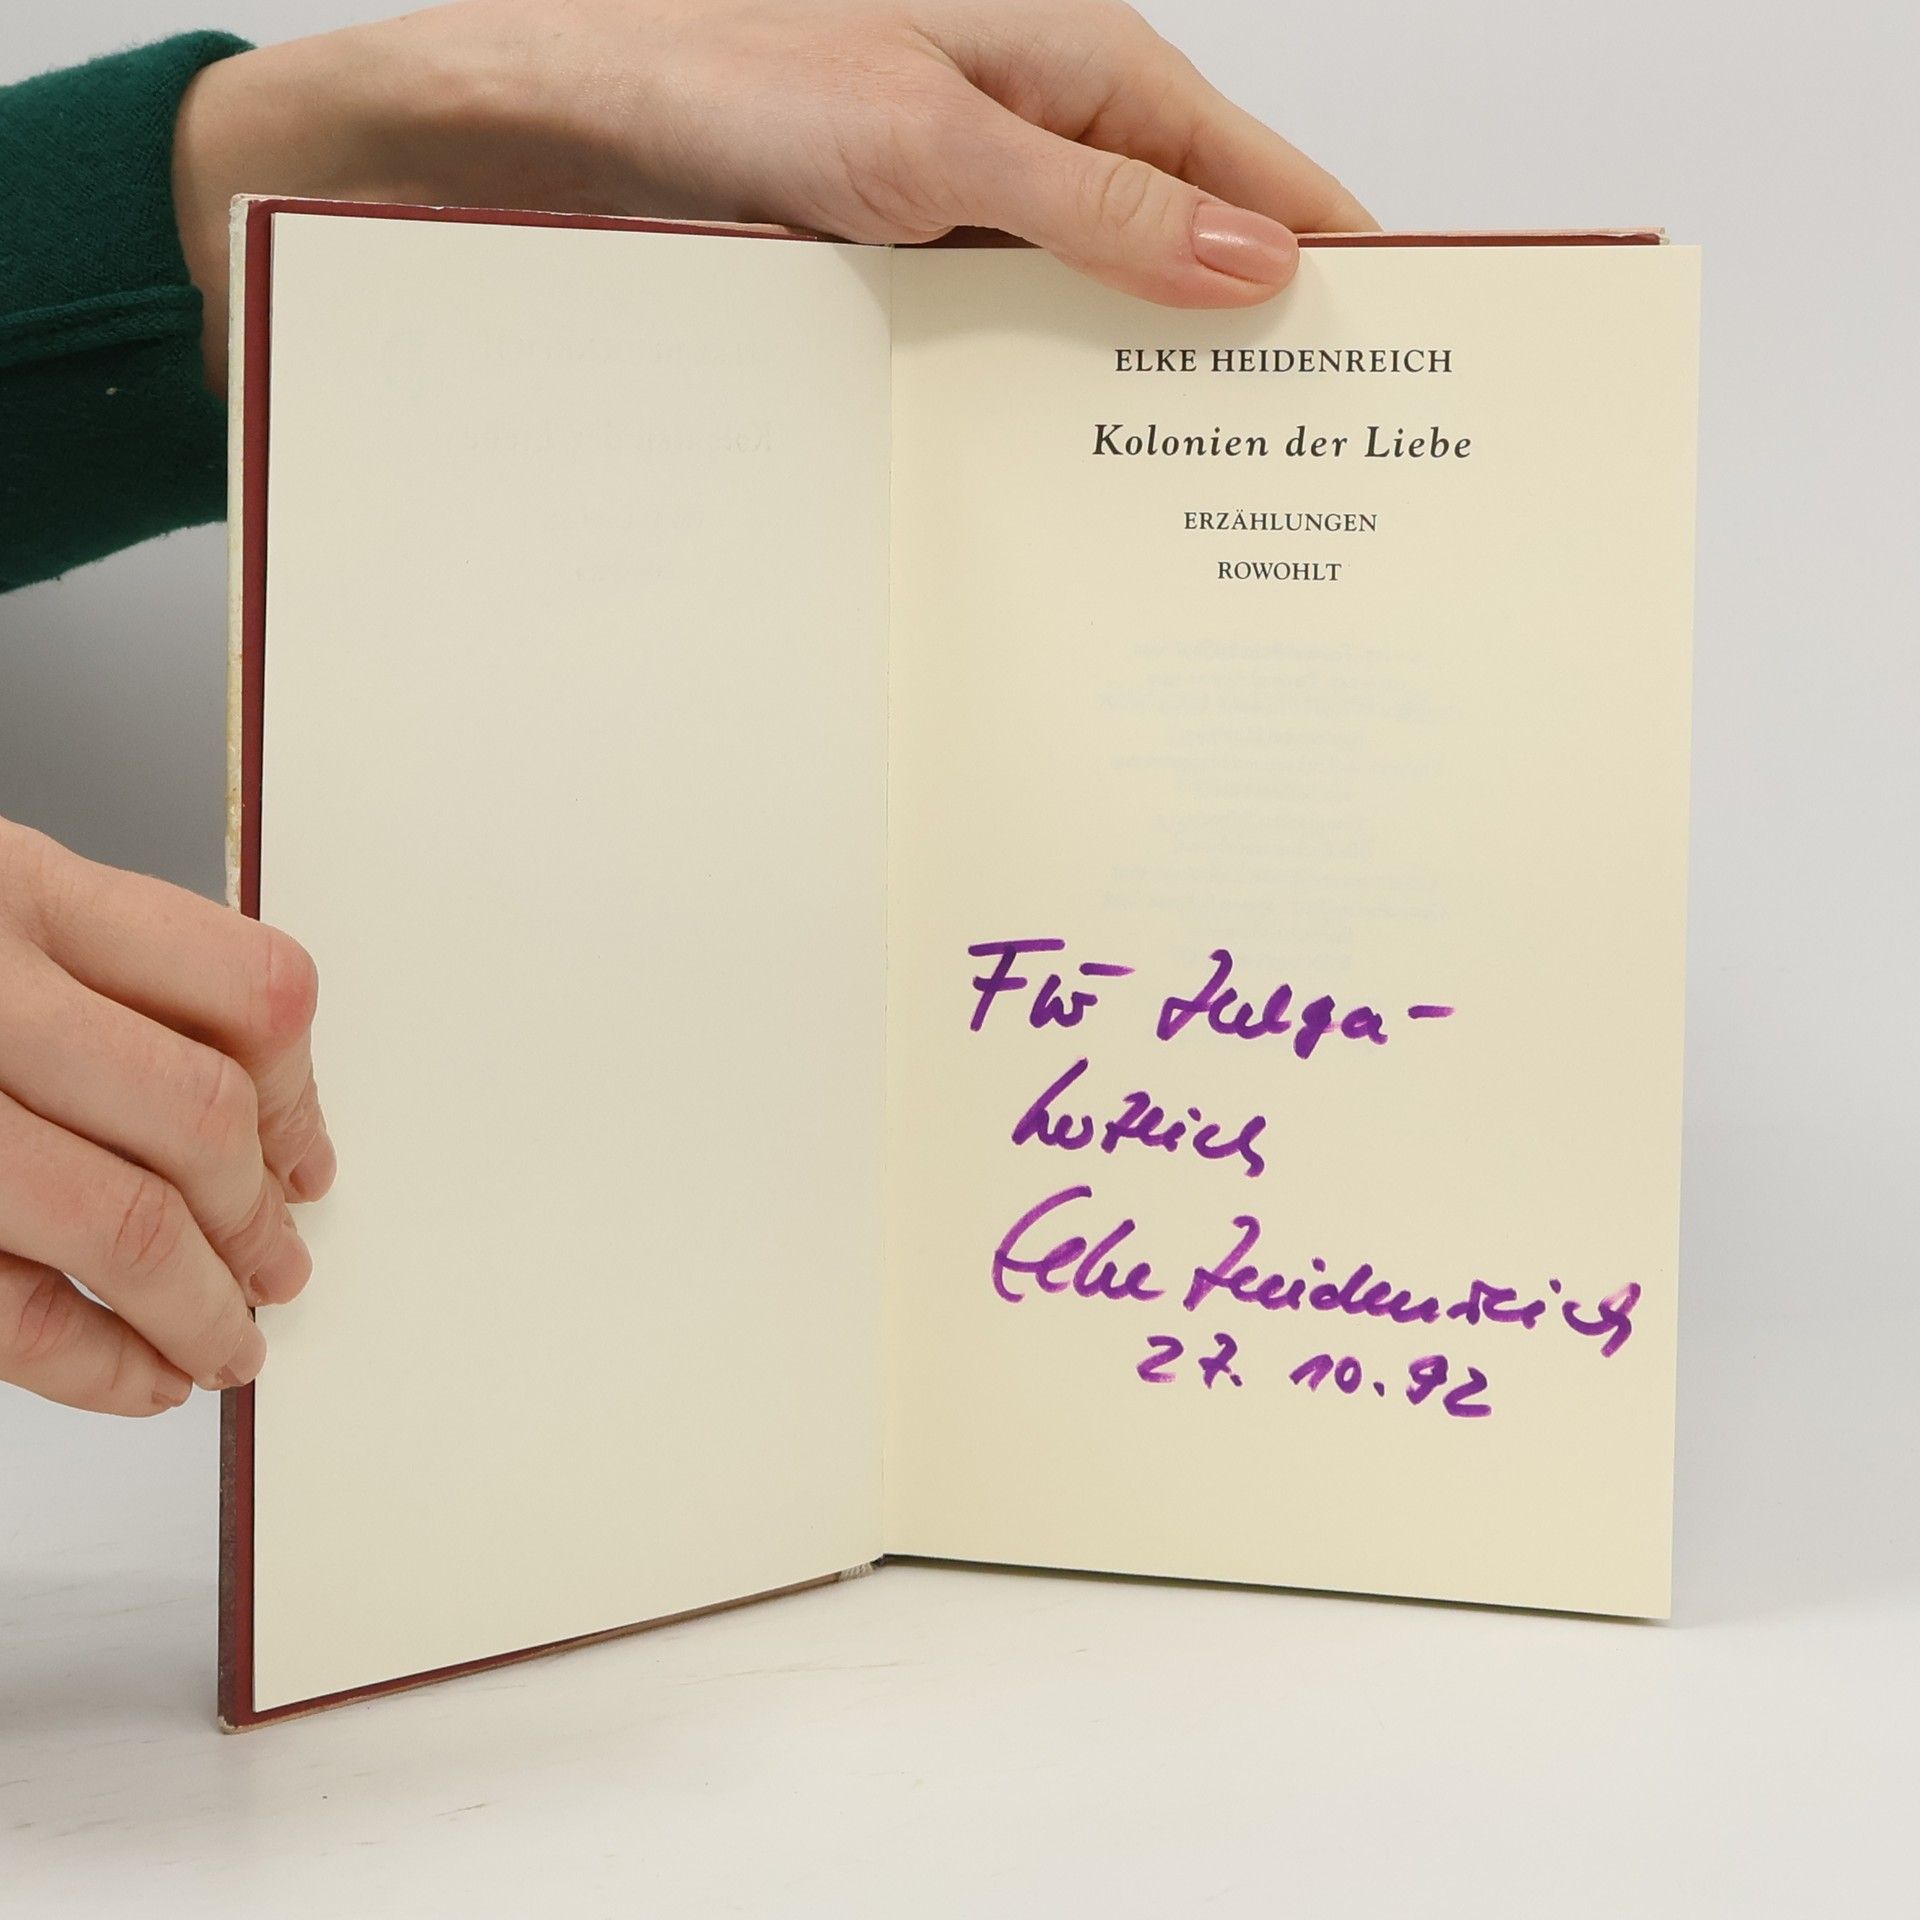 ELKE HEIDENREICH
Kolonien der Liebe
ERZÄHLUNGEN
ROWOHLT
Für Helga –
herzlich
Elke Heidenreich
27. 10. 92